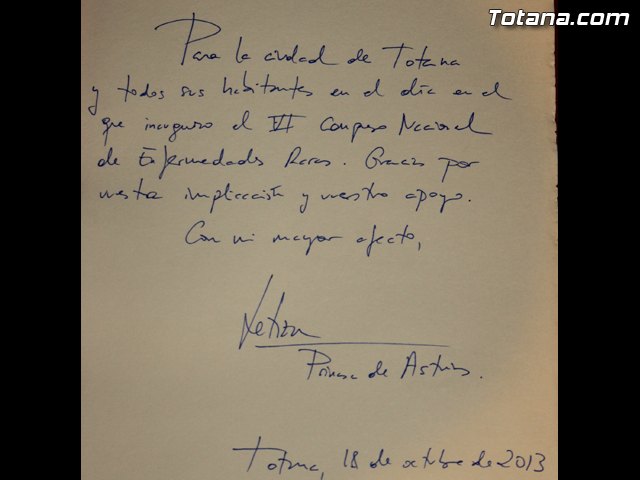 Totana.com
Para la ciudad de Totana
y todos sus habitantes en el día en el
que inauguro el VI Congreso Nacional
de Enfermedades Raras. Gracias por
vuestra implicación y vuestro apoyo.
Con mi mayor afecto,
Letizia
Princesa de Asturias.
Totana, 18 de octubre de 2013